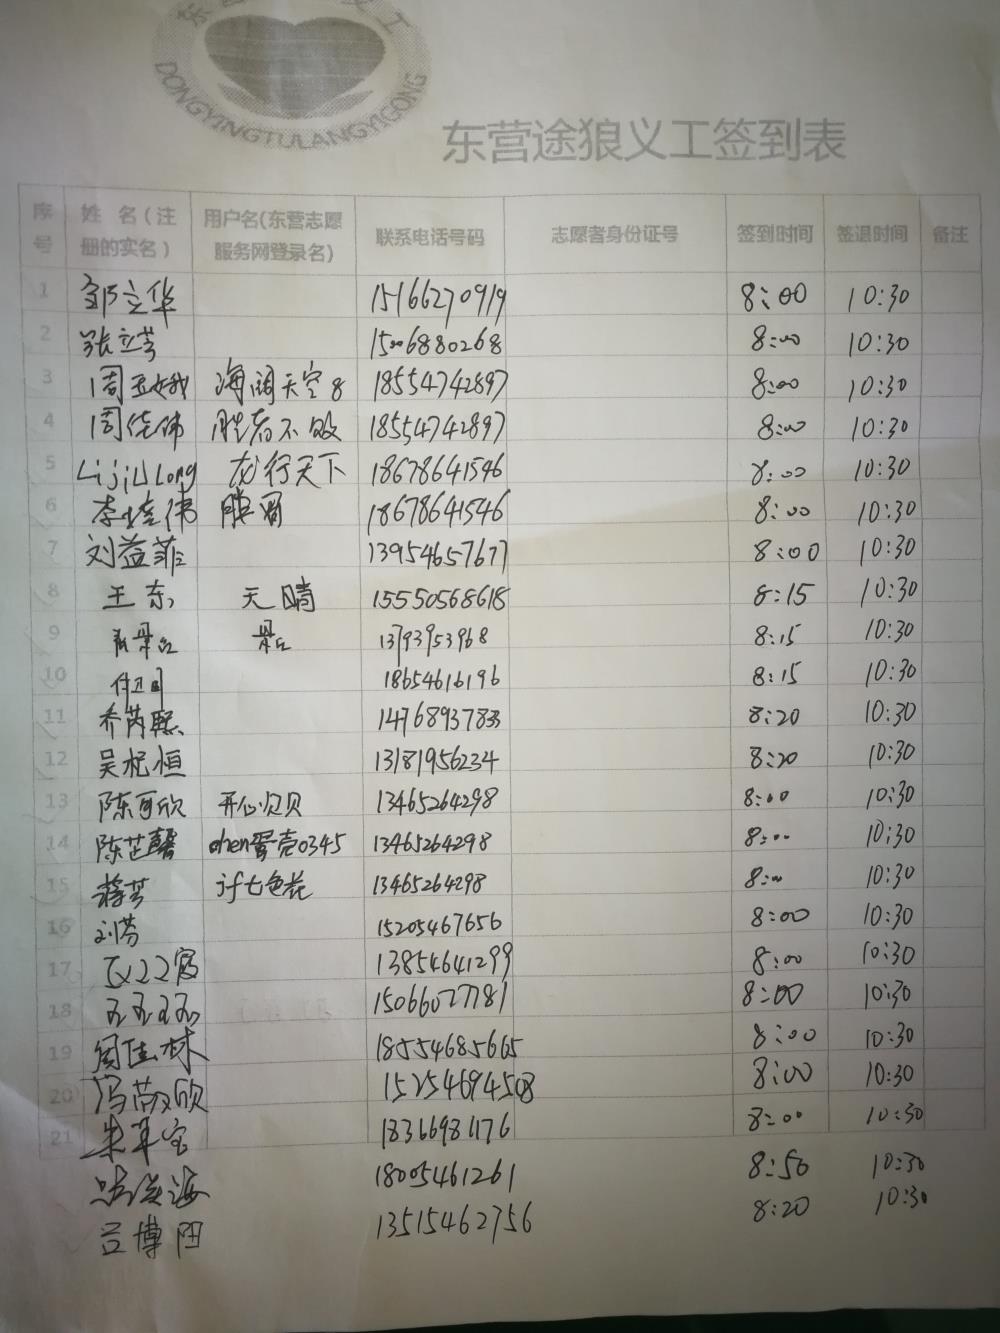 DONGYINGTULANGYIGONG
东营途狼义工签到表
序号 姓 名(注册的实名) 用户名(东营志愿服务网登录名) 联系电话号码 志愿者身份证号 签到时间 签退时间 备注
1 邹立华 15166270919 8:00 10:30
2 张立芳 15006880268 8:00 10:30
3 周玉娥 海阔天空8 18554742897 8:00 10:30
4 周佐伟 胜者不败 18554742897 8:00 10:30
5 LijiuLong 龙行天下 18678641546 8:00 10:30
6 李佳伟 18678641546 8:00 10:30
7 刘益菲 13954657677 8:00 10:30
8 王东 天晴 15550568618 8:15 10:30
9 13793953968 8:15 10:30
10 18654616196 8:15 10:30
11 乔芮熙 14768937833 8:20 10:30
12 吴杞恒 13181956234 8:20 10:30
13 陈可欣 开心贝贝 13465264298 8:00 10:30
14 陈芷馨 chen蛋壳0345 13465264298 8:00 10:30
15 蒋芳 jf七色花 13465264298 8:00 10:30
16 刘芬 15205467656 8:00 10:30
17 13854641299 8:00 10:30
18 15066027781 8:00 10:30
19 周佳林 18554685665 8:00 10:30
20 冯苡欣 15254694508 8:00 10:30
21 18366981176 8:00 10:30
18005461261 8:50 10:30
吕博阳 13515462756 8:20 10:30